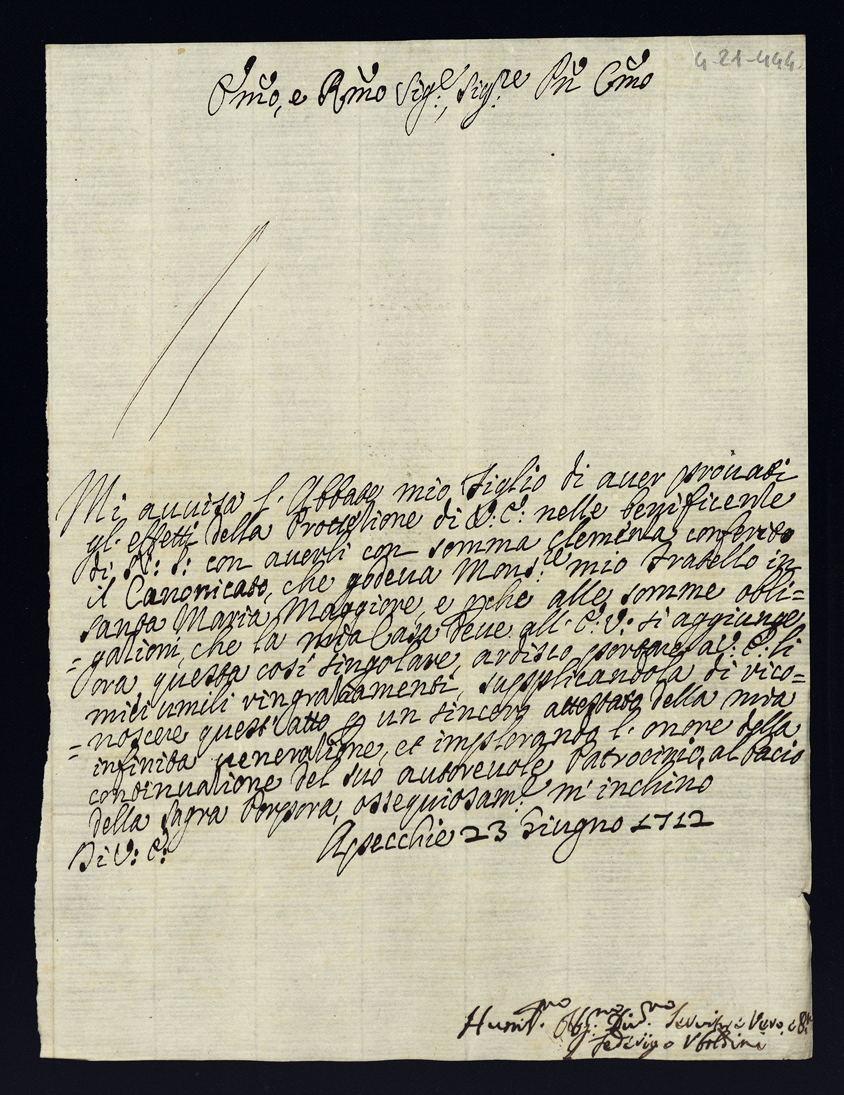 4-21-444.
Emo, e Rmo Sigr, Sigre Pñ Cmo
Mi avvisa l'Abbate mio figlio di aver provati
gl'effetti della Protezione di V: E: nelle benificenze
di N: S: con averli con somma clemenza conferito
il Canonicato, che godeva Monsre mio fratello in
santa Maria Maggiore, e perche alle somme obli=
=gazioni, che la mia Casa deve all'E: V: si aggiunge
ora questa così singolare, ardisco portare a V: E: li
miei umili ringraziamenti, supplicandola di rico=
=noscere quest'atto per un sincero attestato della mia
infinita venerazione, et implorando l'onore della
continuazione del suo autorevole Patrocinio, al bacio
della sagra Porpora, ossequiosamte m'inchino
Di V: E:
Apecchie 23 Giugno 1712
Humilmo Devmo Servitore Vero
Federigo Ubaldini